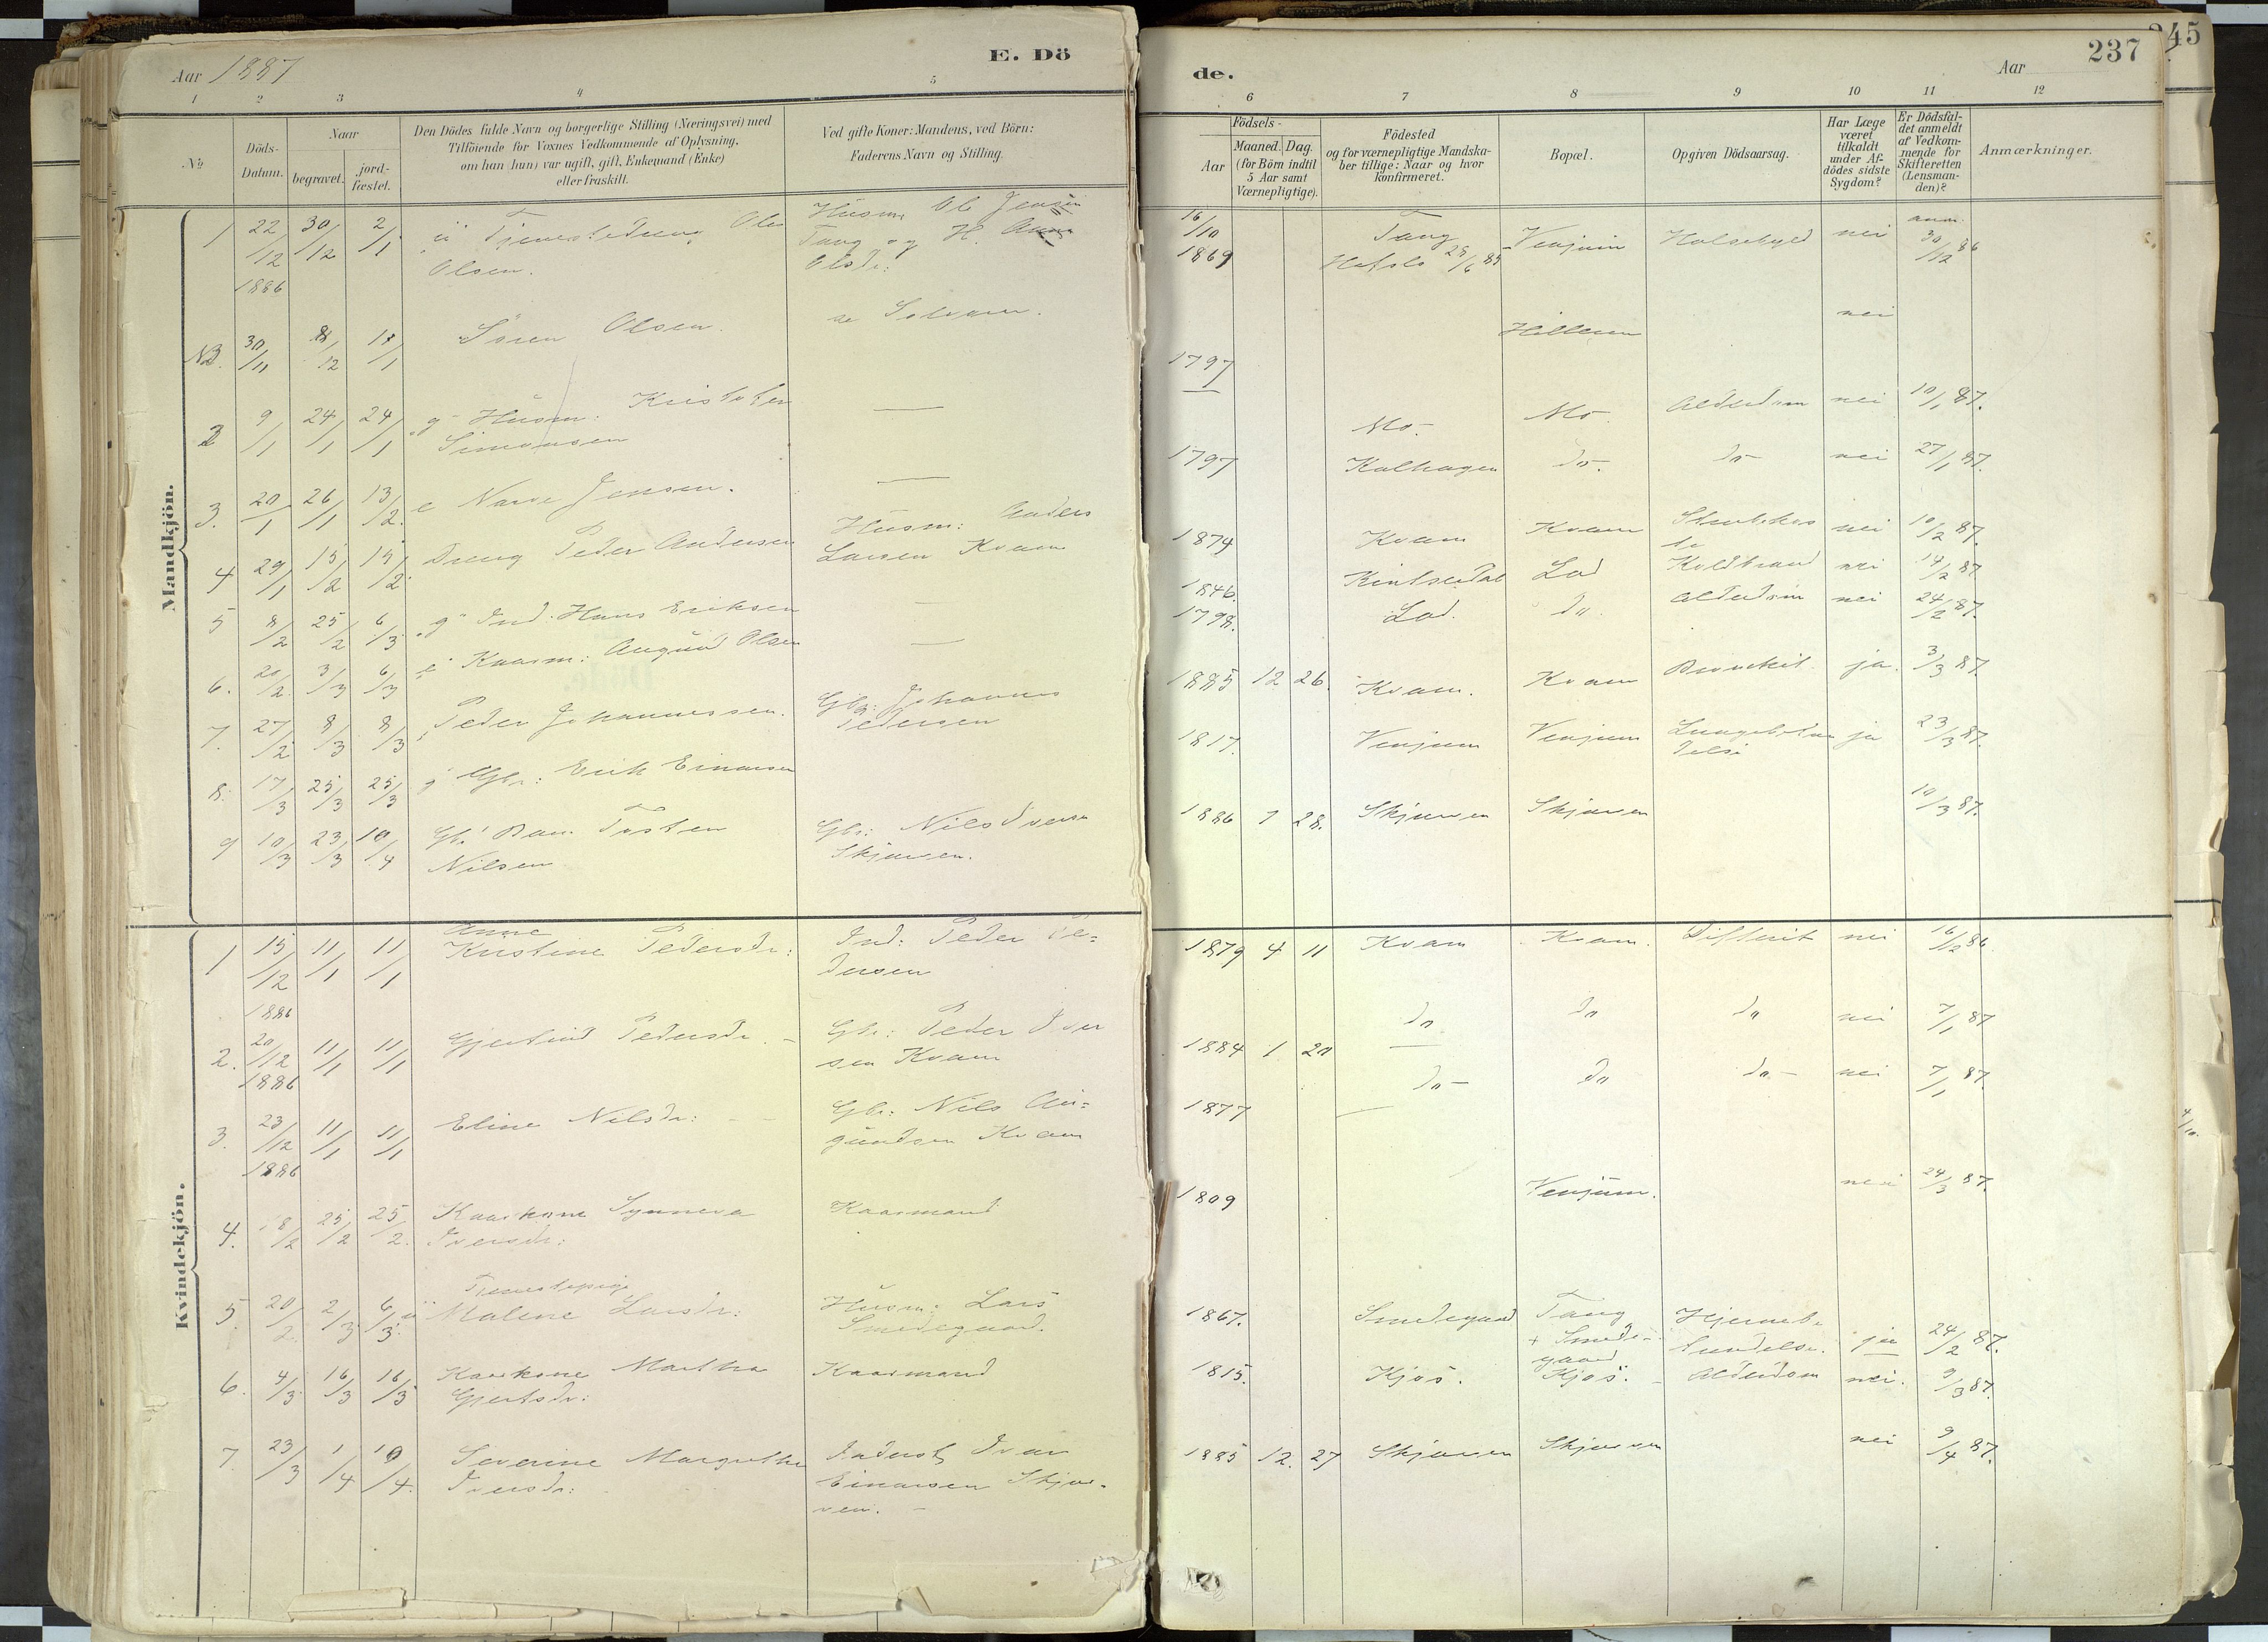 Aar 1887
E. Dö
1 2 3 4 5
№
Döds-Datum.
Naar
begravet.
jord-fæstet.
Den Dödes fulde Navn og borgerlige Stilling (Næringsvei) med
Tilföiende for Voxnes Vedkommende af Oplysning,
om han (hun) var ugift, gift, Enkemand (Enke)
eller fraskilt.
Ved gifte Koner: Mandens, ved Börn:
Faderens Navn og Stilling.
Mandkjön.
1 22/12 1886 30/12 2/1 Tjenestedreng Ole
Olsen.
Husm. Ole Jensen
Tang og H.
Olsdr:
NB. 30/11 8/12 Sören Olsen.
2 9/1 24/1 24/1 g Husm: Kristofer
Simonsen
3. 20/1 26/1 13/2. e Jensen.
4 29/1 15/2 Dreng Peder Andersen
Husm: Anders
Larsen Kvam
5 8/2 25/2 6/3 g Ind. Hans Eriksen
6. 20/2 3/3 6/3 Kaarm: Olsen
7. 27/2 8/3 8/3 Peder Johannessen.
Gbr: Johannes
Pedersen
8. 17/3 25/3 25/3 g Gbr: Erik Einarsen
9 10/3 23/3 10/4 Gbr. Barn Tosten
Nilsen
Gbr: Nils Iversen
Skjærven.
Kvindekjön.
1 15/12 1886 11/1 11/1 Anne
Kristine Pedersdr:
Ind: Peder Pe=
dersen
2. 20/12 1886 11/1 11/1 Gjertrud Pedersdr. -
Gbr: Peder Iver
sen Kvam
3. 23/12 1886 11/1 11/1 Eline Nilsdr:
Gbr: Nils
Kvam
4. 18/2 25/2 25/2. Kaarkone Synneva
Iversdr:
Kaarmand
5. 20/2 2/3 6/3. Tjenestepige
Malene Larsdr:
Husm: Lars
Smedegaard.
6. 4/3 16/3 16/3 Kaarkone Martha
Gjertsdr:
Kaarmand
7. 23/3 1/4 10/4. Severine Margrethe
Iversdr:
Inderst Ivar
Einarsen Skjær-
ven. -
de.
Aar
237
245
6 7 8 9 10 11 12
Födsels-
Aar
Maaned. Dag.
(for Börn indtil
5 Aar samt
Værnepligtige).
Födested
og for værnepligtige Mandska-
ber tillige: Naar og hvor
konfirmeret.
Bopæl.
Opgiven Dödsaarsag.
Har Læge
været
tilkaldt
under Af-
dödes sidste
Sygdom?
Er Dödsfal-
det anmeldt
af Vedkom-
mende for
Skifteretten
(Lensman-
den)?
Anmærkninger.
16/10 1869 Tang
Hafslo 28/6 85
Venjum Halsebyld nei anm. 30/12 86
1797 Hillerm nei
Mo. Mo. Alderdom nei 10/1 87.
1797 Kalhagen do. do nei 27/1 87.
1874 Kvam Kvam nei 10/2 87.
1846. Lad Koldbrand nei 14/2 87
1798. Lad. do. Alderdom nei 24/2 87.
1885 12 26. Kvam. Kvam Bronchit. ja. 3/3 87.
1817. Venjum Venjum Lungebetæn
delse
ja 23/3 87.
1886 7 28. Skjærven Skjærven 10/3 87.
1879 4 11 Kvam Kvam. Difterit nei 16/12 86
1884 1 20 do do do nei 7/1 87
1877 do- do do- nei 7/1 87
1809 Venjum. nei 24/3 87.
1867. Smedegaard Tang
+ Smede-
gaard
Hjernebe
tændelse.
ja 24/2 87.
1815. Kjös. Kjös. Alderdom nei. 9/3 87.
1885 12. 27 Skjærven Skjærven nei 9/4 87.
4/10.